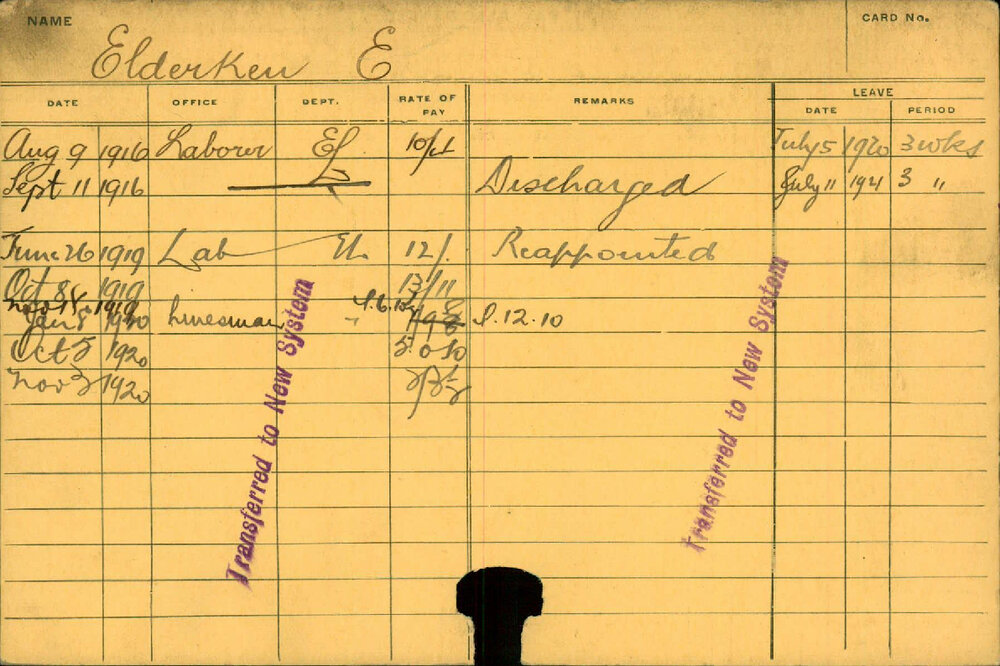 NAME
CARD No.
Elderken E
DATE OFFICE DEPT. RATE OF PAY REMARKS LEAVE
DATE PERIOD
Aug 9 1916 Laborer El. July 5 1920 3 wks
Sept 11 1916 Discharged July 11 1921 3 "
June 26 1919 Lab El. 12/. Reappointed
Oct 8 1919 13/11
Nov 18 1919
Jan 8 1920 Linesman " £.12.10
Oct 5 1920 5.0.10
Nov 3 1920
Transferred to New System
Transferred to New System